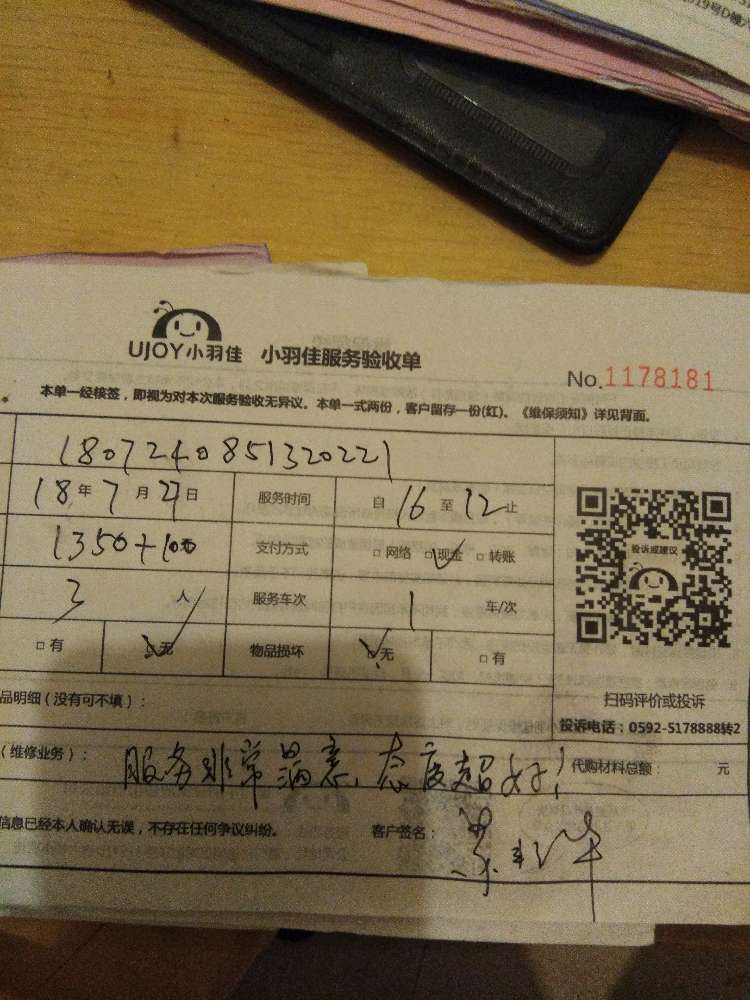 19号D幢
UJOY小羽佳 小羽佳服务验收单
No.1178181
本单一经核签，即视为对本次服务验收无异议。本单一式两份，客户留存一份(红)。《维保须知》详见背面。
1807240851320221
18年7月27日 服务时间 自16至12止
1350+100 支付方式 □网络 □现金 □转账
3人 服务车次 1车/次
□有 □无 物品损坏 □无 □有
投诉或建议
扫码评价或投诉
品明细（没有可不填）：
投诉电话：0592-5178888转2
（维修业务）： 服务非常满意、态度超好！ 代购材料总额： 元
信息已经本人确认无误，不存在任何争议纠纷。 客户签名：